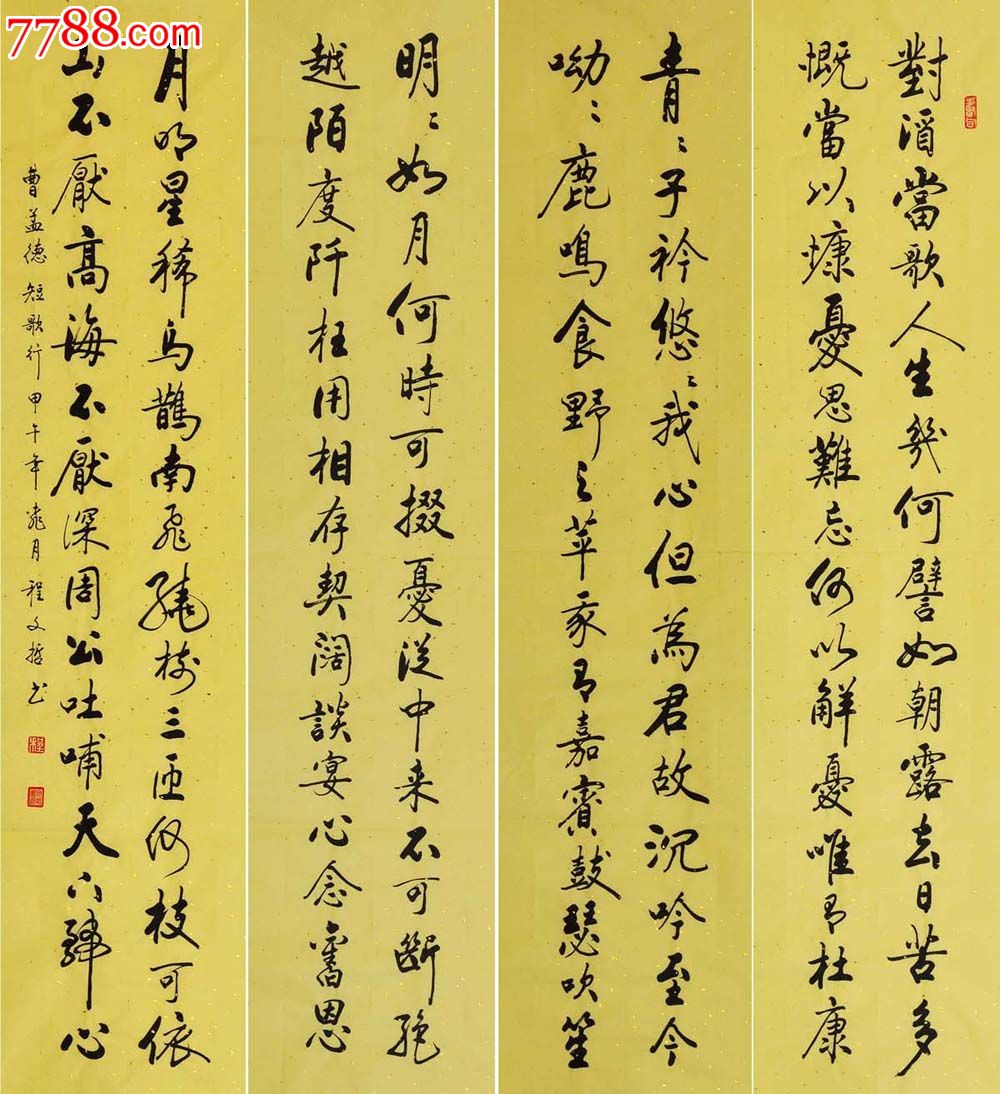 7788.com
中国收藏热线
對酒當歌人生幾何譬如朝露去日苦多
慨當以慷憂思難忘何以解憂唯有杜康
青〻子衿悠〻我心但為君故沉吟至今
呦〻鹿鳴食野之苹我有嘉賓鼓瑟吹笙
明〻如月何時可掇憂從中来不可斷絕
越陌度阡枉用相存契闊談宴心念舊恩
月明星稀烏鵲南飛繞樹三匝何枝可依
山不厭高海不厭深周公吐哺天下歸心
曹孟德短歌行甲午年月程文哲书